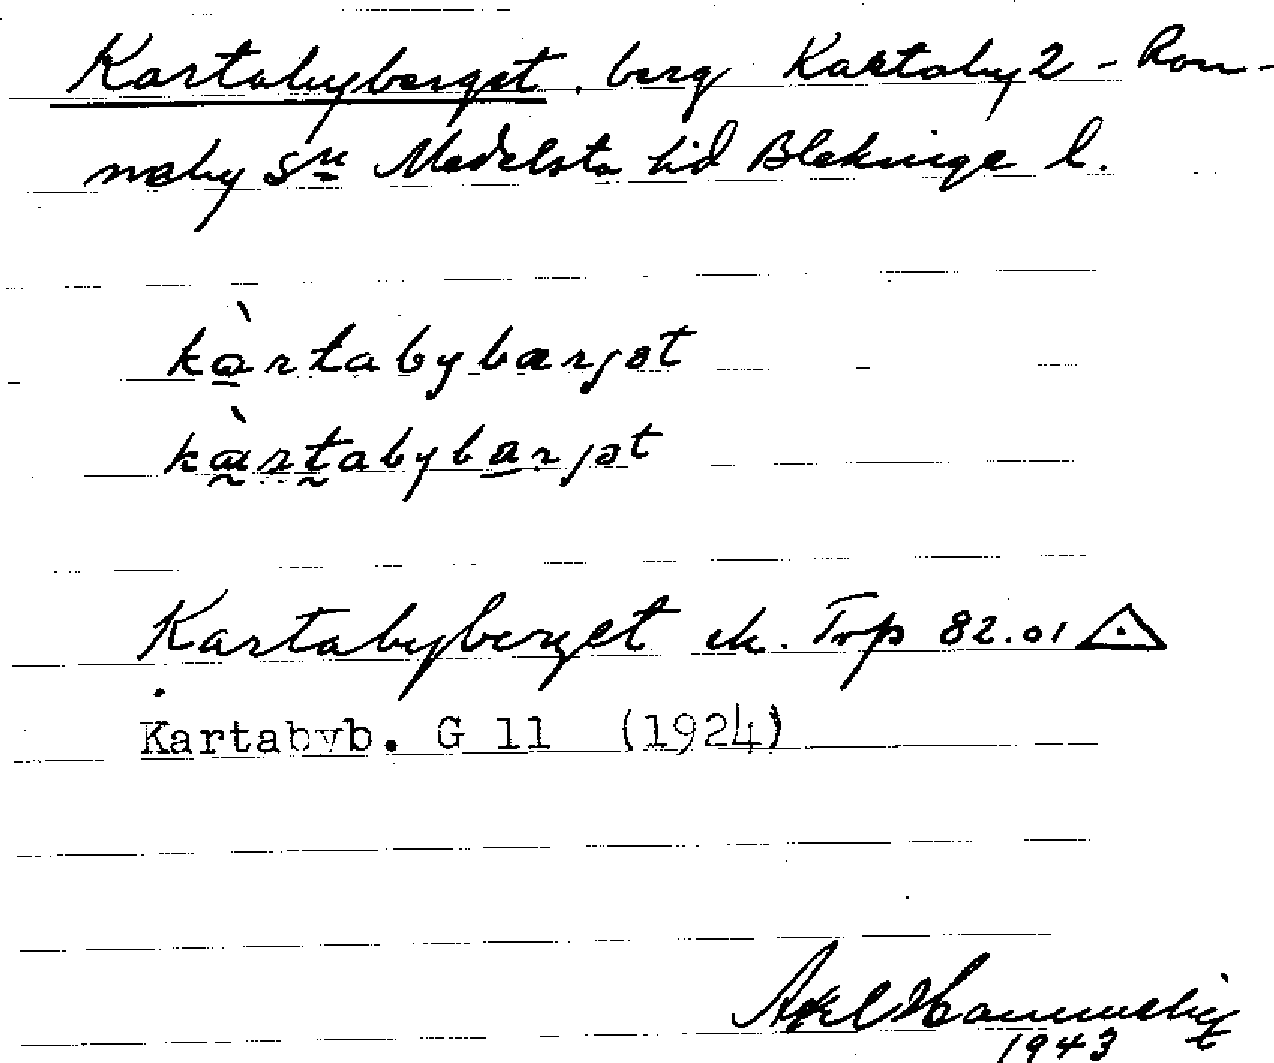 Kartabyberget, berg Kartaby 2 - Ron-
neby sn Medelsta hd Blekinge l.
kàrtabybærjət
kàrtabybarjət
Kartabyberget ek. Top 82.01
Kartabyb. G 11 (1924)
Axel
1943